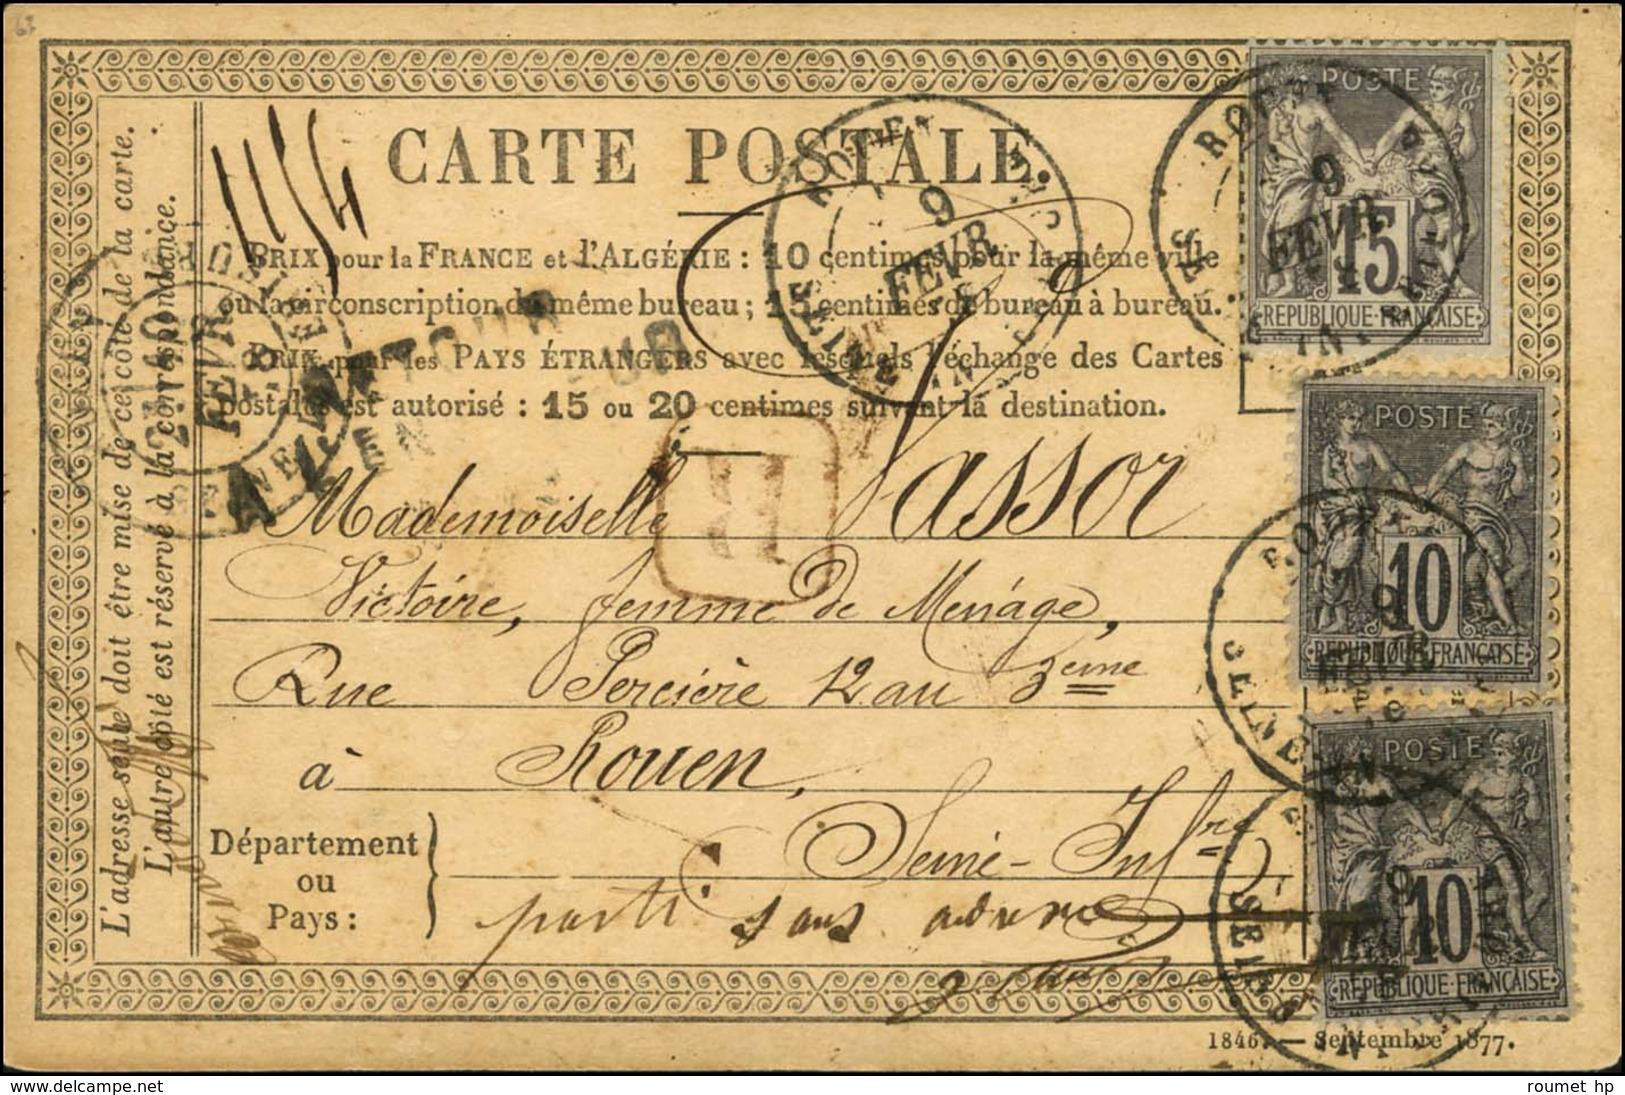 CARTE POSTALE.
1154
PRIX pour la FRANCE et l'ALGÉRIE : 10 centimes pour la même ville
ou la circonscription du même bureau ; 15 centimes de bureau à bureau.
PRIX pour les PAYS ÉTRANGERS avec lesquels l'échange des Cartes
postales est autorisé : 15 ou 20 centimes suivant la destination.
L'adresse seule doit être mise de ce côté de la carte.
L'autre côté est réservé à la correspondance.
RETOUR
R
ROUEN
9
FEVR
SEINE
POSTE
15
REPUBLIQUE FRANÇAISE
9
FEVR
POSTE
10
REPUBLIQUE FRANÇAISE
POSTE
10
REPUBLIQUE FRANÇAISE
FEVR
Mademoiselle Vassor
Victoire, femme de Ménage,
Rue Percière 12 au 3eme
à Rouen,
Seine-Infre
Département
ou
Pays :
parti sans adresse
1846. — Septembre 1877.
roumet hp